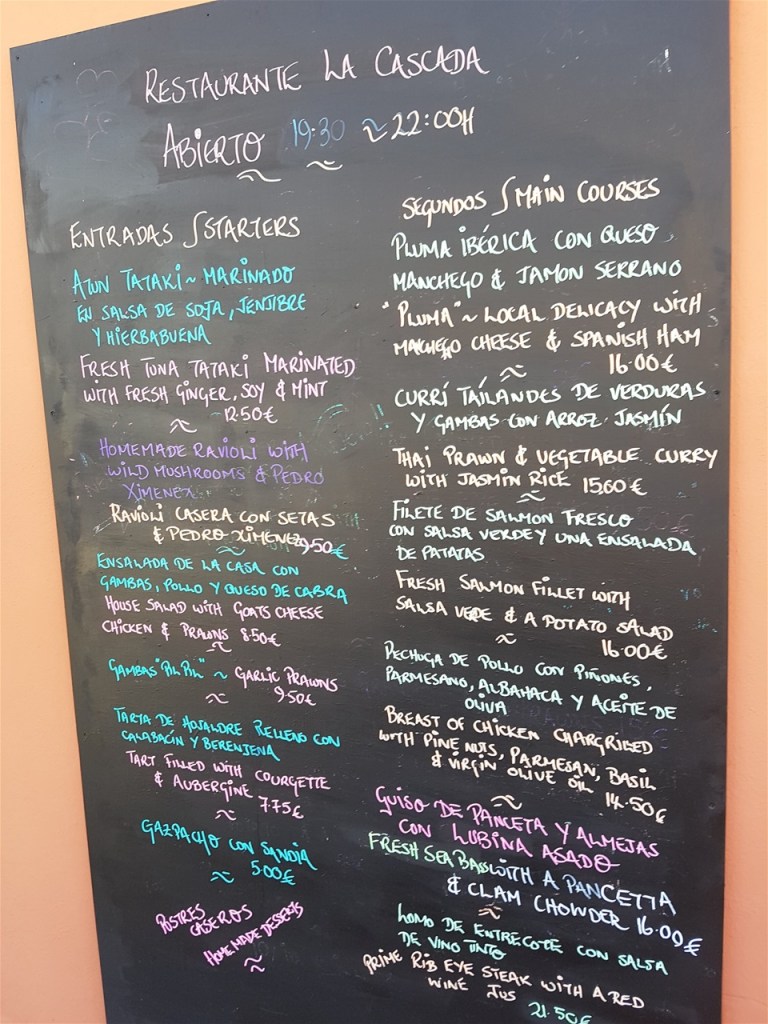 RESTAURANTE LA CASCADA
ABIERTO 19.30 ~ 22:00H
ENTRADAS / STARTERS
ATUN TATAKI ~ MARINADO
EN SALSA DE SOJA, JENJIBRE
Y HIERBABUENA
FRESH TUNA TATAKI MARINATED
WITH FRESH GINGER, SOY & MINT
12.50€
HOMEMADE RAVIOLI WITH
WILD MUSHROOMS & PEDRO
XIMENEX
RAVIOLI CASERA CON SETAS
& PEDRO XIMENEZ 9.50€
ENSALADA DE LA CASA CON
GAMBAS, POLLO Y QUESO DE CABRA
HOUSE SALAD WITH GOATS CHEESE
CHICKEN & PRAWNS 8.50€
GAMBAS "PIL PIL" ~ GARLIC PRAWNS
9.50€
TARTA DE HOJALDRE RELLENO CON
CALABACÍN Y BERENJENA
TART FILLED WITH COURGETTE
& AUBERGINE 7.75€
GAZPACHO CON SANDIA
5.00€
POSTRES
CASEROS
HOMEMADE DESERTS
SEGUNDOS / MAIN COURSES
PLUMA IBÉRICA CON QUESO
MANCHEGO & JAMON SERRANO
"PLUMA" ~ LOCAL DELICACY WITH
MACHEGO CHEESE & SPANISH HAM
16.00€
CURRÍ TAILANDES DE VERDURAS
Y GAMBAS CON ARROZ JASMÍN
THAI PRAWN & VEGETABLE CURRY
WITH JASMIN RICE 15.00€
FILETE DE SALMON FRESCO
CON SALSA VERDE Y UNA ENSALADA
DE PATATAS
FRESH SALMON FILLET WITH
SALSA VERDE & A POTATO SALAD
16.00€
PECHUGA DE POLLO CON PIÑONES,
PARMESANO, ALBAHACA Y ACEITE DE
OLIVA
BREAST OF CHICKEN CHARGRILLED
WITH PINE NUTS, PARMESAN, BASIL
& VIRGIN OLIVE OIL 14.50€
GUISO DE PANCETA Y ALMEJAS
CON LUBINA ASADO
FRESH SEA BASS WITH A PANCETTA
& CLAM CHOWDER 16.00€
LOMO DE ENTRECOTE CON SALSA
DE VINO TINTO
PRIME RIB EYE STEAK WITH A RED
WINE JUS 21.50€